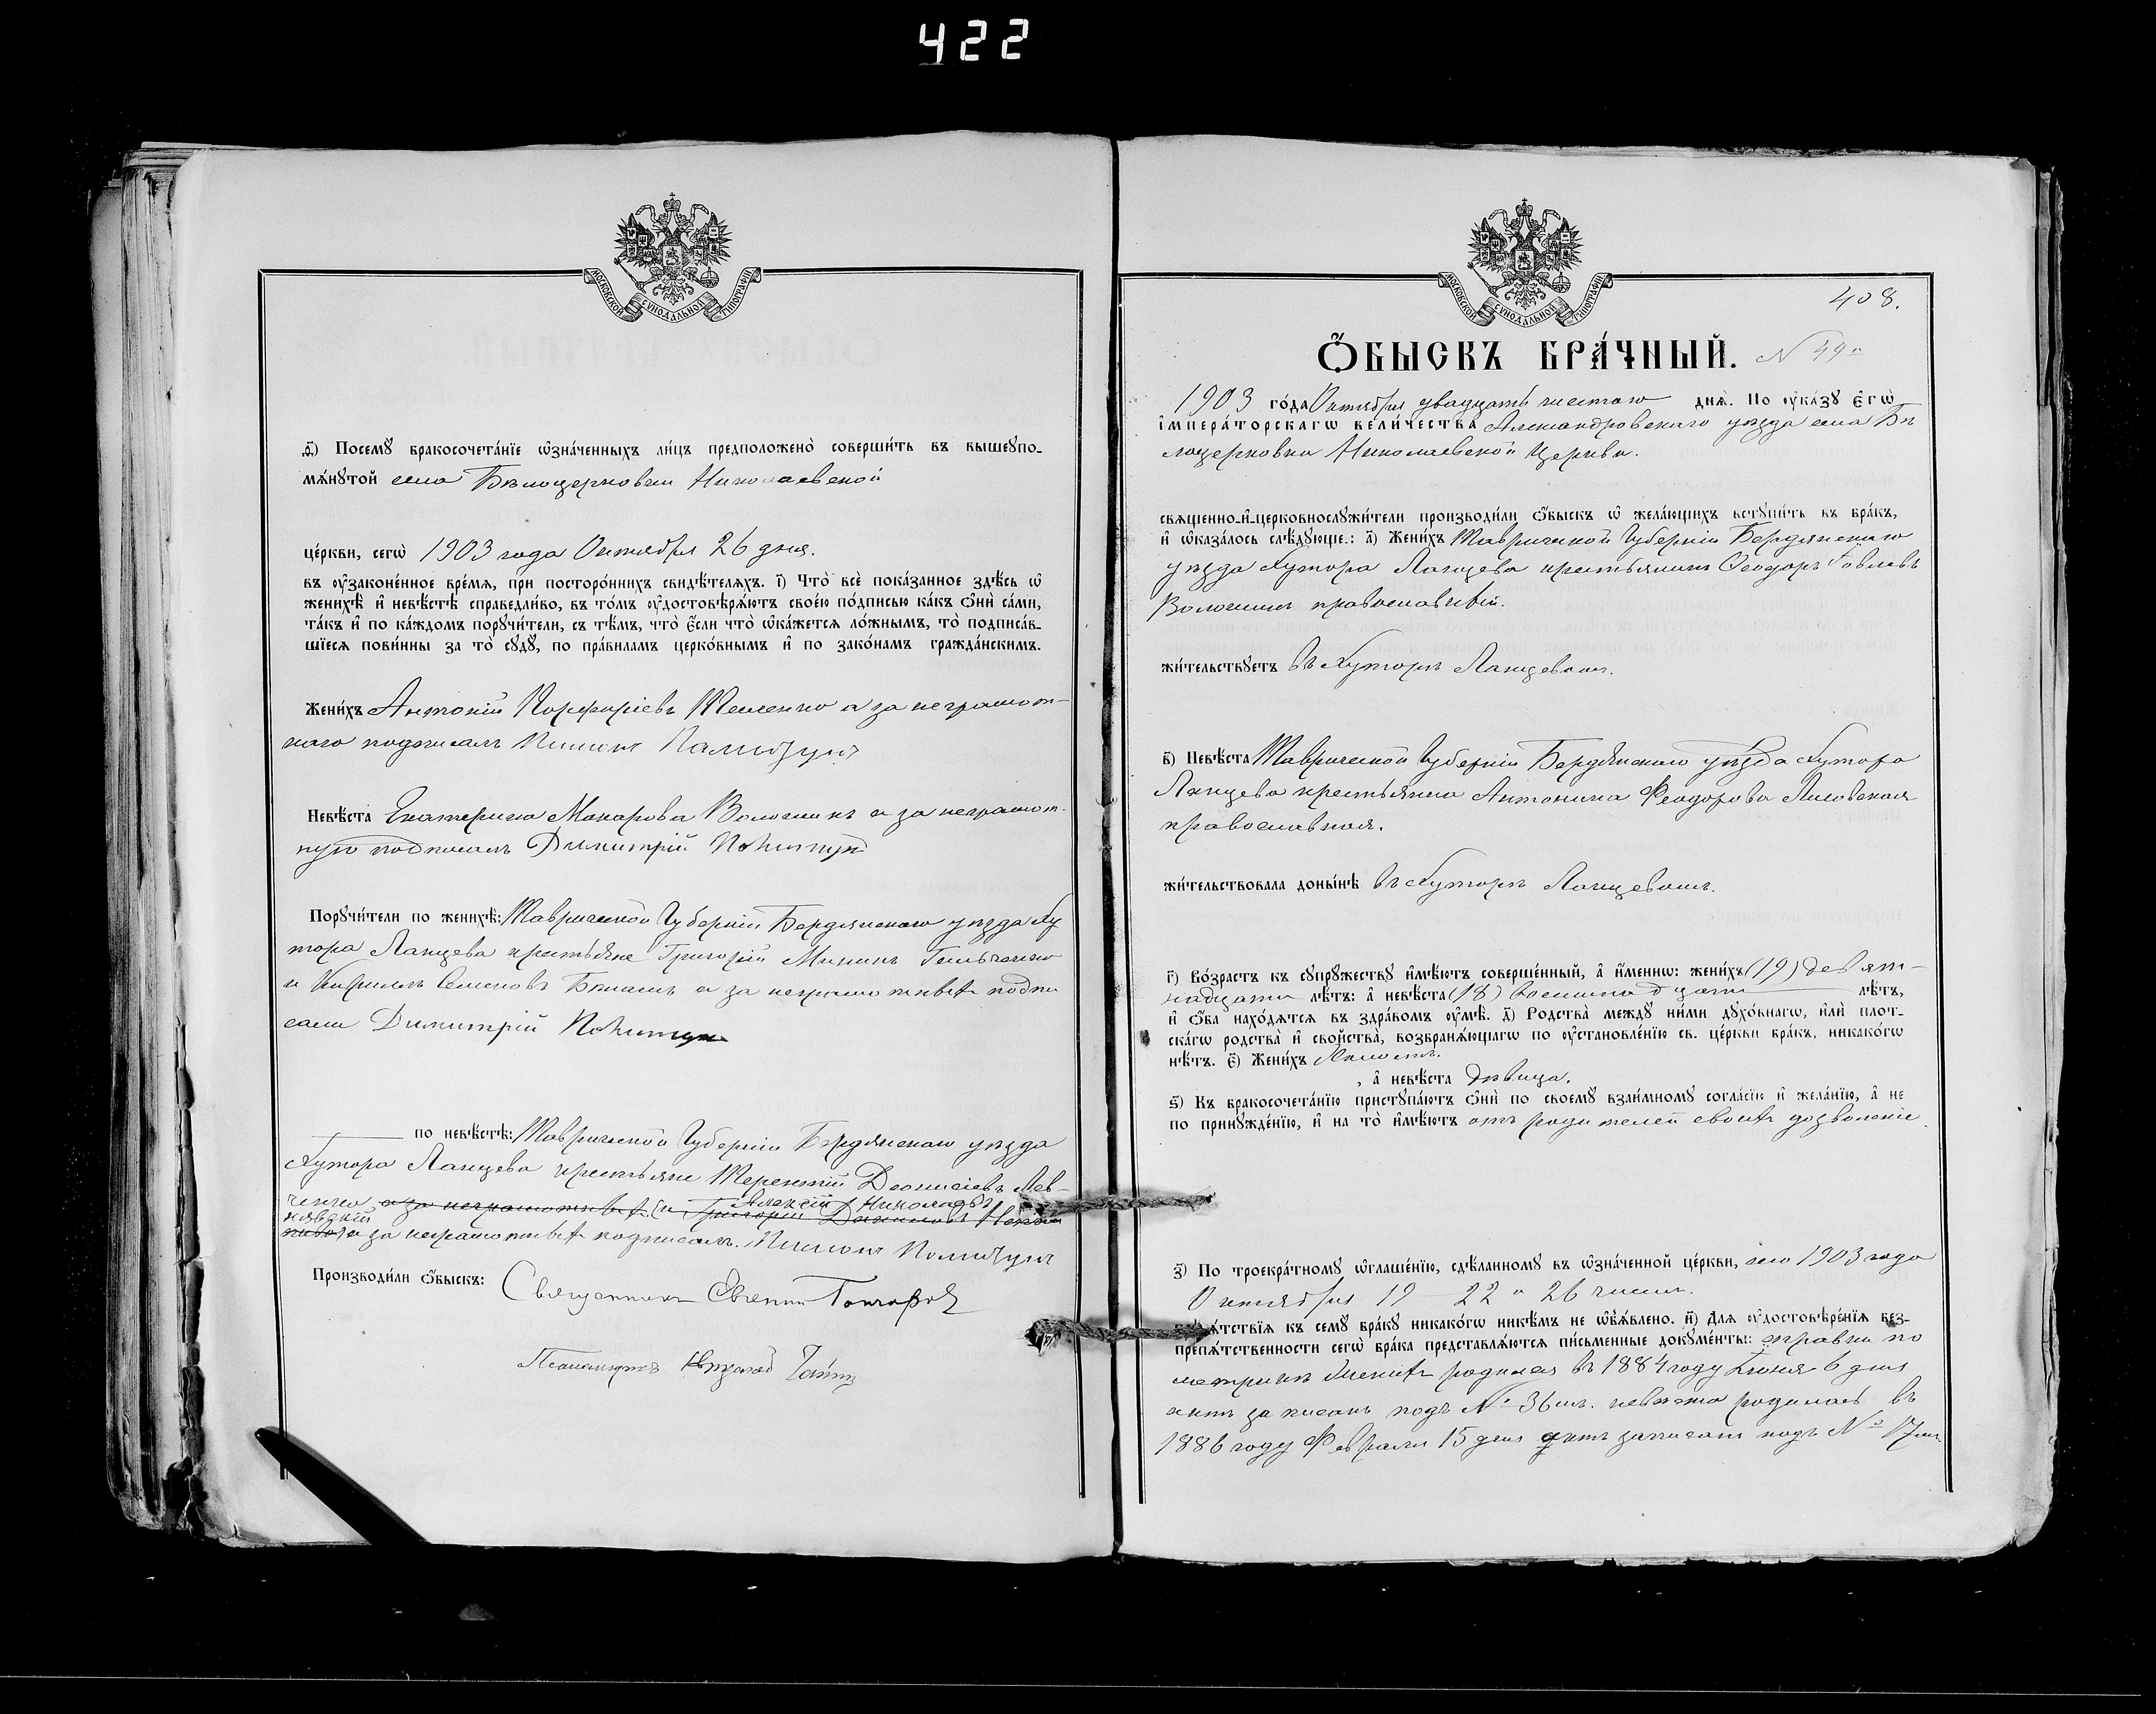 422
МОСКОВСКОЙ СѴНОДАЛЬНОЙ ТИПОГРАФІИ
Посемꙋ̀ бракосочета́нїе ѡ҆зна́ченныхъ ли́цъ предположено̀ соверши́ть въ вышеꙋпо-
мѧ́нꙋтой села Бѣлоцерковки Николаевской
це́ркви, сегѡ̀ 1903 года Октября 26 дня.
въ ᲂу҆зако́ненное вре́мѧ, при посторо́ннихъ свидѣ́телѧхъ. і҃) Что̀ всѐ пока́занное здѣ́сь ѡ҆
женихѣ̀ и҆ невѣ́стѣ справедли́во, въ то́мъ ᲂу҆достовѣрѧ́ютъ свое́ю по́дписью ка́къ ѻ҆нѝ са́ми,
та́къ и҆ по ка́ждомъ порꙋчи́тели, съ тѣ́мъ, что̀ є҆́сли что̀ ѡ҆ка́жетсѧ ло́жнымъ, то̀ подписа́в-
шїесѧ пови́нны за то̀ сꙋдꙋ̀, по пра́виламъ церко́внымъ и҆ по зако́намъ гражда́нскимъ.
Жени́хъ Антоній Порфиріевъ а за неграмот-
наго подписалъ Пименъ
Невѣ́ста Екатерина Макарова Волошинъ а за неграмот-
ную подписалъ Димитрій
Порꙋчи́тели по женихѣ̀: Таврической Губерніи Бердянскаго уѣзда Ху
тора Ланцева крестьяне Григорій
и Кириллъ Семеновъ а за неграмотныхъ подпи
салъ Димитрій
по невѣ́стѣ: Таврической Губерніи Бердянскаго уѣзда
Хутора Ланцева крестьяне Терентій Діонисіевъ Лев-
ченко а за неграмотныхъ и Григорій Алексій Николаевъ
а за неграмотныхъ подписалъ. Пименъ
Производи́ли ѻ҆́быскъ: Священникъ Евгеній Гончаровъ
Псаломщикъ
МОСКОВСКОЙ СѴНОДАЛЬНОЙ ТИПОГРАФІИ
408.
Ѻ҆́БЫСКЪ БРА́ЧНЫЙ. N 49
1903 го́да Октября двадцать шестого днѧ̀. По ᲂу҆ка́зꙋ є҆гѡ̀
і҆мпера́торскагѡ вели́чества Александровскаго уѣзда села Бѣ
лоцерковки Николаевской Церкви.
свѧще́нно-и҆-церковнослꙋжи́тели производи́ли ѻ҆́быскъ ѡ҆ жела́ющихъ встꙋпи́ть въ бра́къ,
и҆ ѡ҆каза́лось слѣ́дꙋющее: а҃) Жени́хъ Таврической Губерніи Бердянскаго
уѣзда Хутора Ланцева крестьянинъ Ѳеодоръ Іовлевъ
Волошинъ православный.
жи́тельствꙋетъ въ Хуторѣ Ланцевомъ.
в҃) Невѣ́ста Таврической Губерніи Бердянскаго уѣзда Хутора
Ланцева крестьянка Антонина Феодорова Лисовская
православная.
жи́тельствовала доны́нѣ въ Хуторѣ Ланцевомъ.
г҃) Во́зрастъ къ сꙋпрꙋ́жествꙋ и҆мѣ́ютъ соверше́нный, а҆ и҆́меннѡ: жени́хъ (19) девят-
надцати лѣ́тъ: а҆ невѣ́ста (18) восемнадцати лѣ́тъ,
и҆ ѻ҆́ба нахо́дѧтсѧ въ здра́вомъ ᲂу҆мѣ̀. д҃) Родства̀ междꙋ ни́ми дꙋхо́внагѡ, и҆лѝ плот-
ска́гѡ родства̀ и҆ сво́йства, возбранѧ́ющагѡ по ᲂу҆становле́нїю св. це́ркви бра́къ, никако́гѡ
нѣ́тъ. є҃) Жени́хъ Холостъ.
, а҆ невѣ́ста дѣвица.
ѕ҃) Къ бракосочета́нїю пристꙋпа́ютъ ѻ҆нѝ по своемꙋ̀ взаи́мномꙋ согла́сїю и҆ жела́нїю, а҆ не
по принꙋжде́нїю, и҆ на то̀ и҆мѣ́ютъ отъ родителей своихъ дозволеніе.
з҃) По троекра́тномꙋ ѡ҆глаше́нїю, сдѣ́ланномꙋ въ ѡ҆зна́ченной це́ркви, сего 1903 года
Октября 19 22 и 26 чиселъ.
препѧ́тствїѧ къ семꙋ̀ бра́кꙋ никако́гѡ никѣ́мъ не ѡ҆б̾ѧ́влено. и҃) Длѧ ᲂу҆достовѣре́нїѧ без-
препѧ́тственности сегѡ̀ бра́ка представлѧ́ются пи́сьменные докꙋме́нты: справки по
метрикѣ Женихъ родился въ 1884 году Іюня 6 дня
актъ записанъ подъ № 36 м. невѣста родилась въ
1886 году Февраля 15 дня актъ записанъ подъ № 17